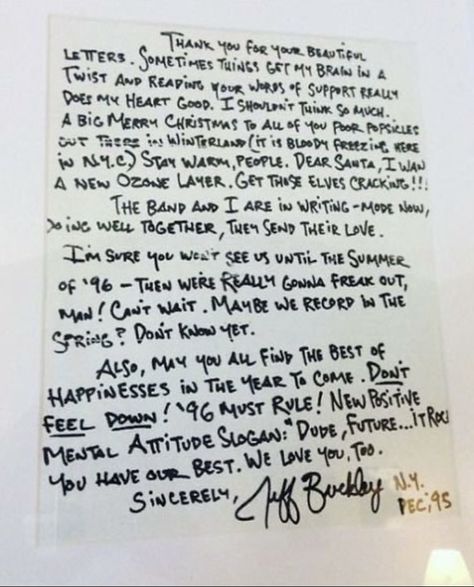 THANK YOU FOR YOUR BEAUTIFUL
LETTERS. SOMETIMES THINGS GET MY BRAIN IN A
TWIST AND READING YOUR WORDS OF SUPPORT REALLY
DOES MY HEART GOOD. I SHOULDN'T THINK SO MUCH.
A BIG MERRY CHRISTMAS TO ALL OF YOU POOR POPSICLES
OUT THERE IN WINTERLAND (IT IS BLOODY FREEZING HERE
IN N.Y.C.) STAY WARM, PEOPLE. DEAR SANTA, I WAN
A NEW OZONE LAYER. GET THOSE ELVES CRACKING!!!
THE BAND AND I ARE IN WRITING-MODE NOW,
DOING WELL TOGETHER, THEY SEND THEIR LOVE.
I'M SURE YOU WON'T SEE US UNTIL THE SUMMER
OF '96 - THEN WE'RE REALLY GONNA FREAK OUT,
MAN! CAN'T WAIT. MAYBE WE RECORD IN THE
SPRING? DON'T KNOW YET.
ALSO, MAY YOU ALL FIND THE BEST OF
HAPPINESSES IN THE YEAR TO COME. DON'T
FEEL DOWN! '96 MUST RULE! NEW POSITIVE
MENTAL ATTITUDE SLOGAN: "DUDE, FUTURE...IT ROC
YOU HAVE OUR BEST. WE LOVE YOU, TOO.
SINCERELY, Jeff Buckley N.Y.
DEC, '95